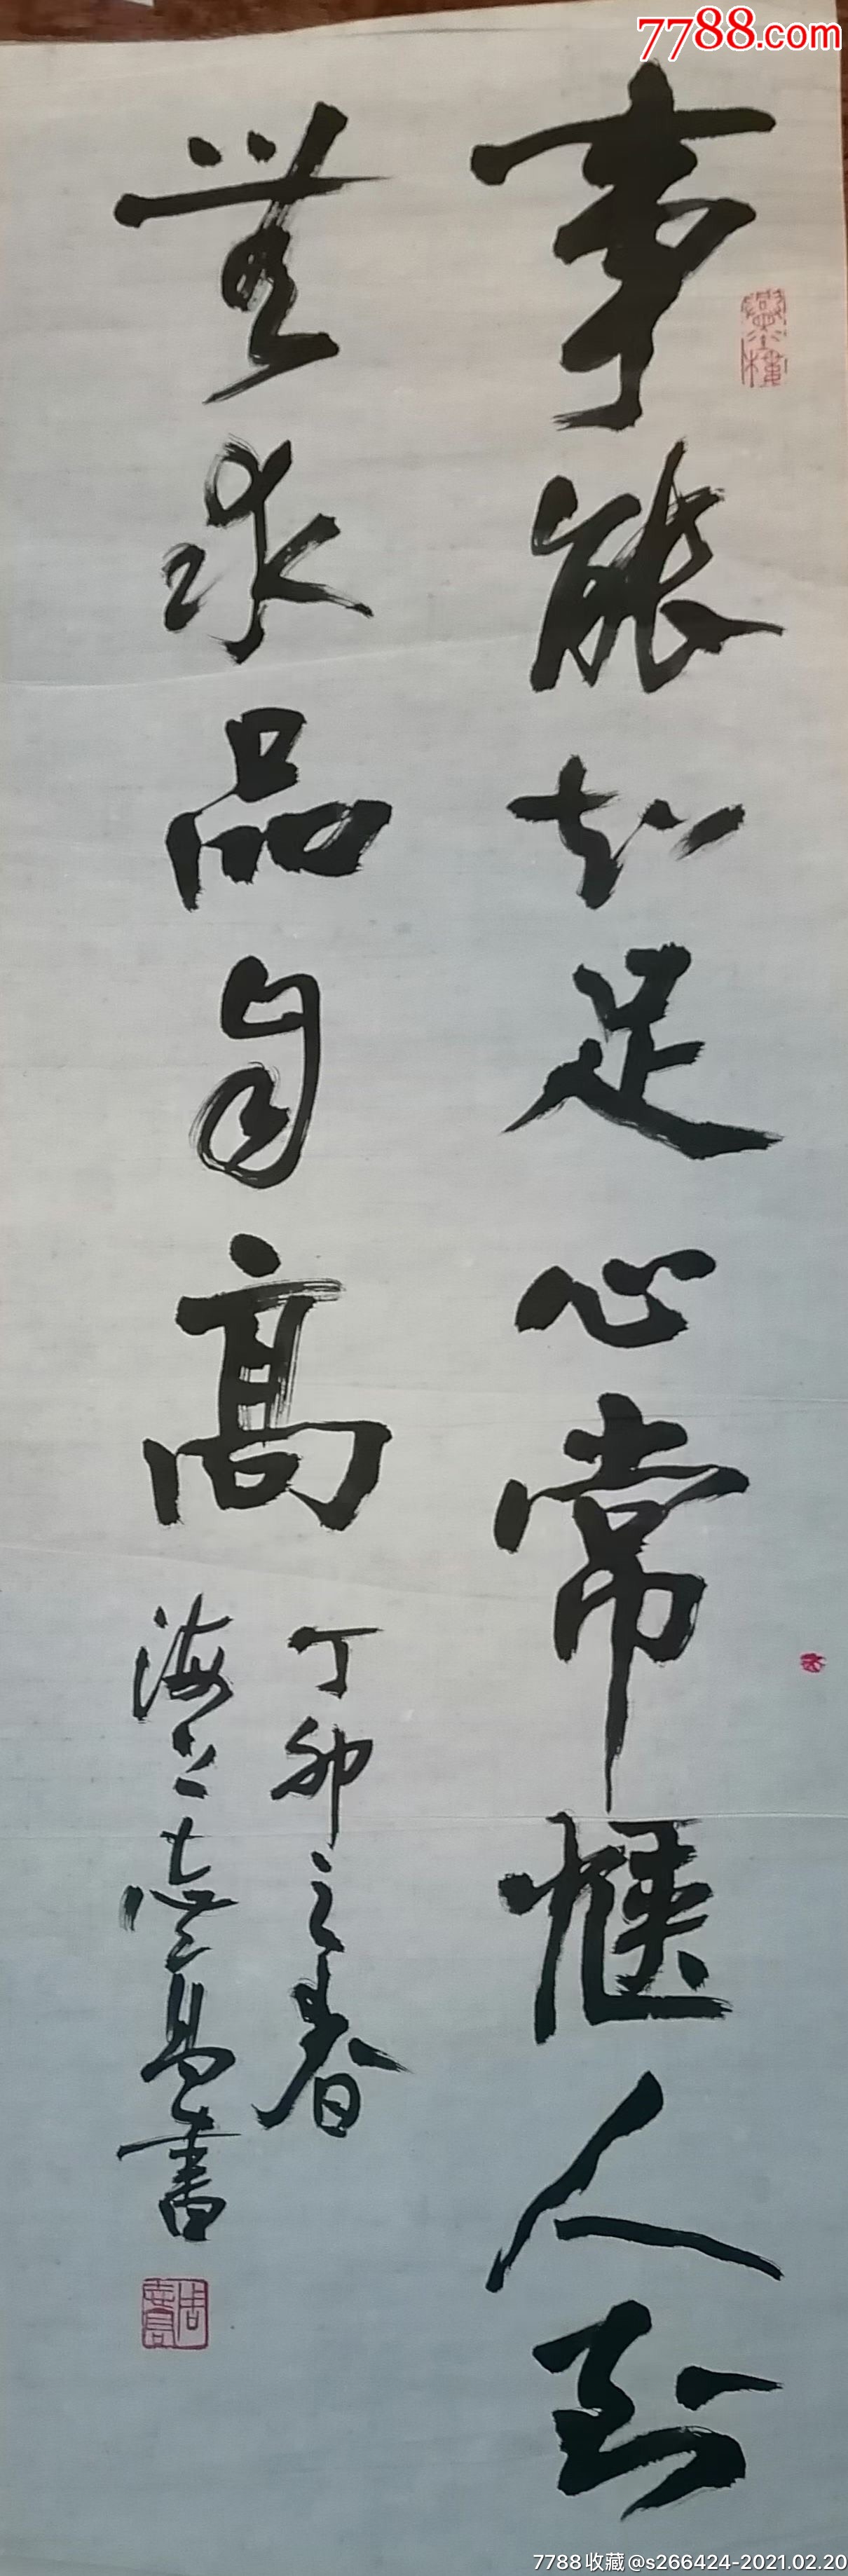 7788.com
事能知足心常惬人到
无求品自高
丁卯之春
海上
书
7788收藏@s266424-2021.02.20